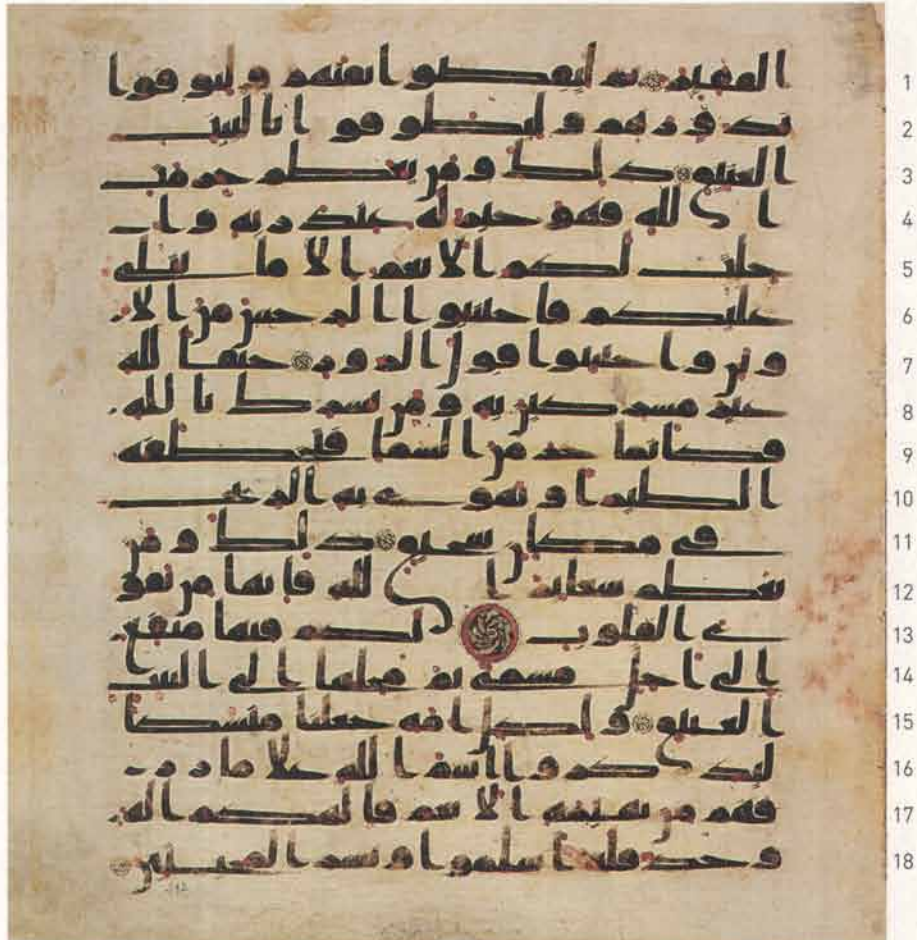 الفقير ثم ليقضوا تفثهم وليوفوا 1
نذورهم وليطوفوا بالبيت 2
العتيق ذلك ومن يعظم حرمت 3
الله فهو خير له عند ربه وا 4
حلت لكم الانعم الا ما يتلى 5
عليكم فاجتنبوا الرجس من الا 6
وثن واجتنبوا قول الزور حنفا لله 7
غير مشركين به ومن يشرك بالله 8
فكانما خر من السما فتخطفه 9
الطير او تهوي به الريح 10
في مكان سحيق ذلك ومن 11
يعظم شعئر الله فانها من تقوى 12
القلوب لكم فيها منفع 13
الى اجل مسمى ثم محلها الى البيت 14
العتيق ولكل امة جعلنا منسكا 15
ليذكروا اسم الله على ما رز 16
قهم من بهيمة الانعم فالهكم اله 17
وحد فله اسلموا وبشر المخبتين 18